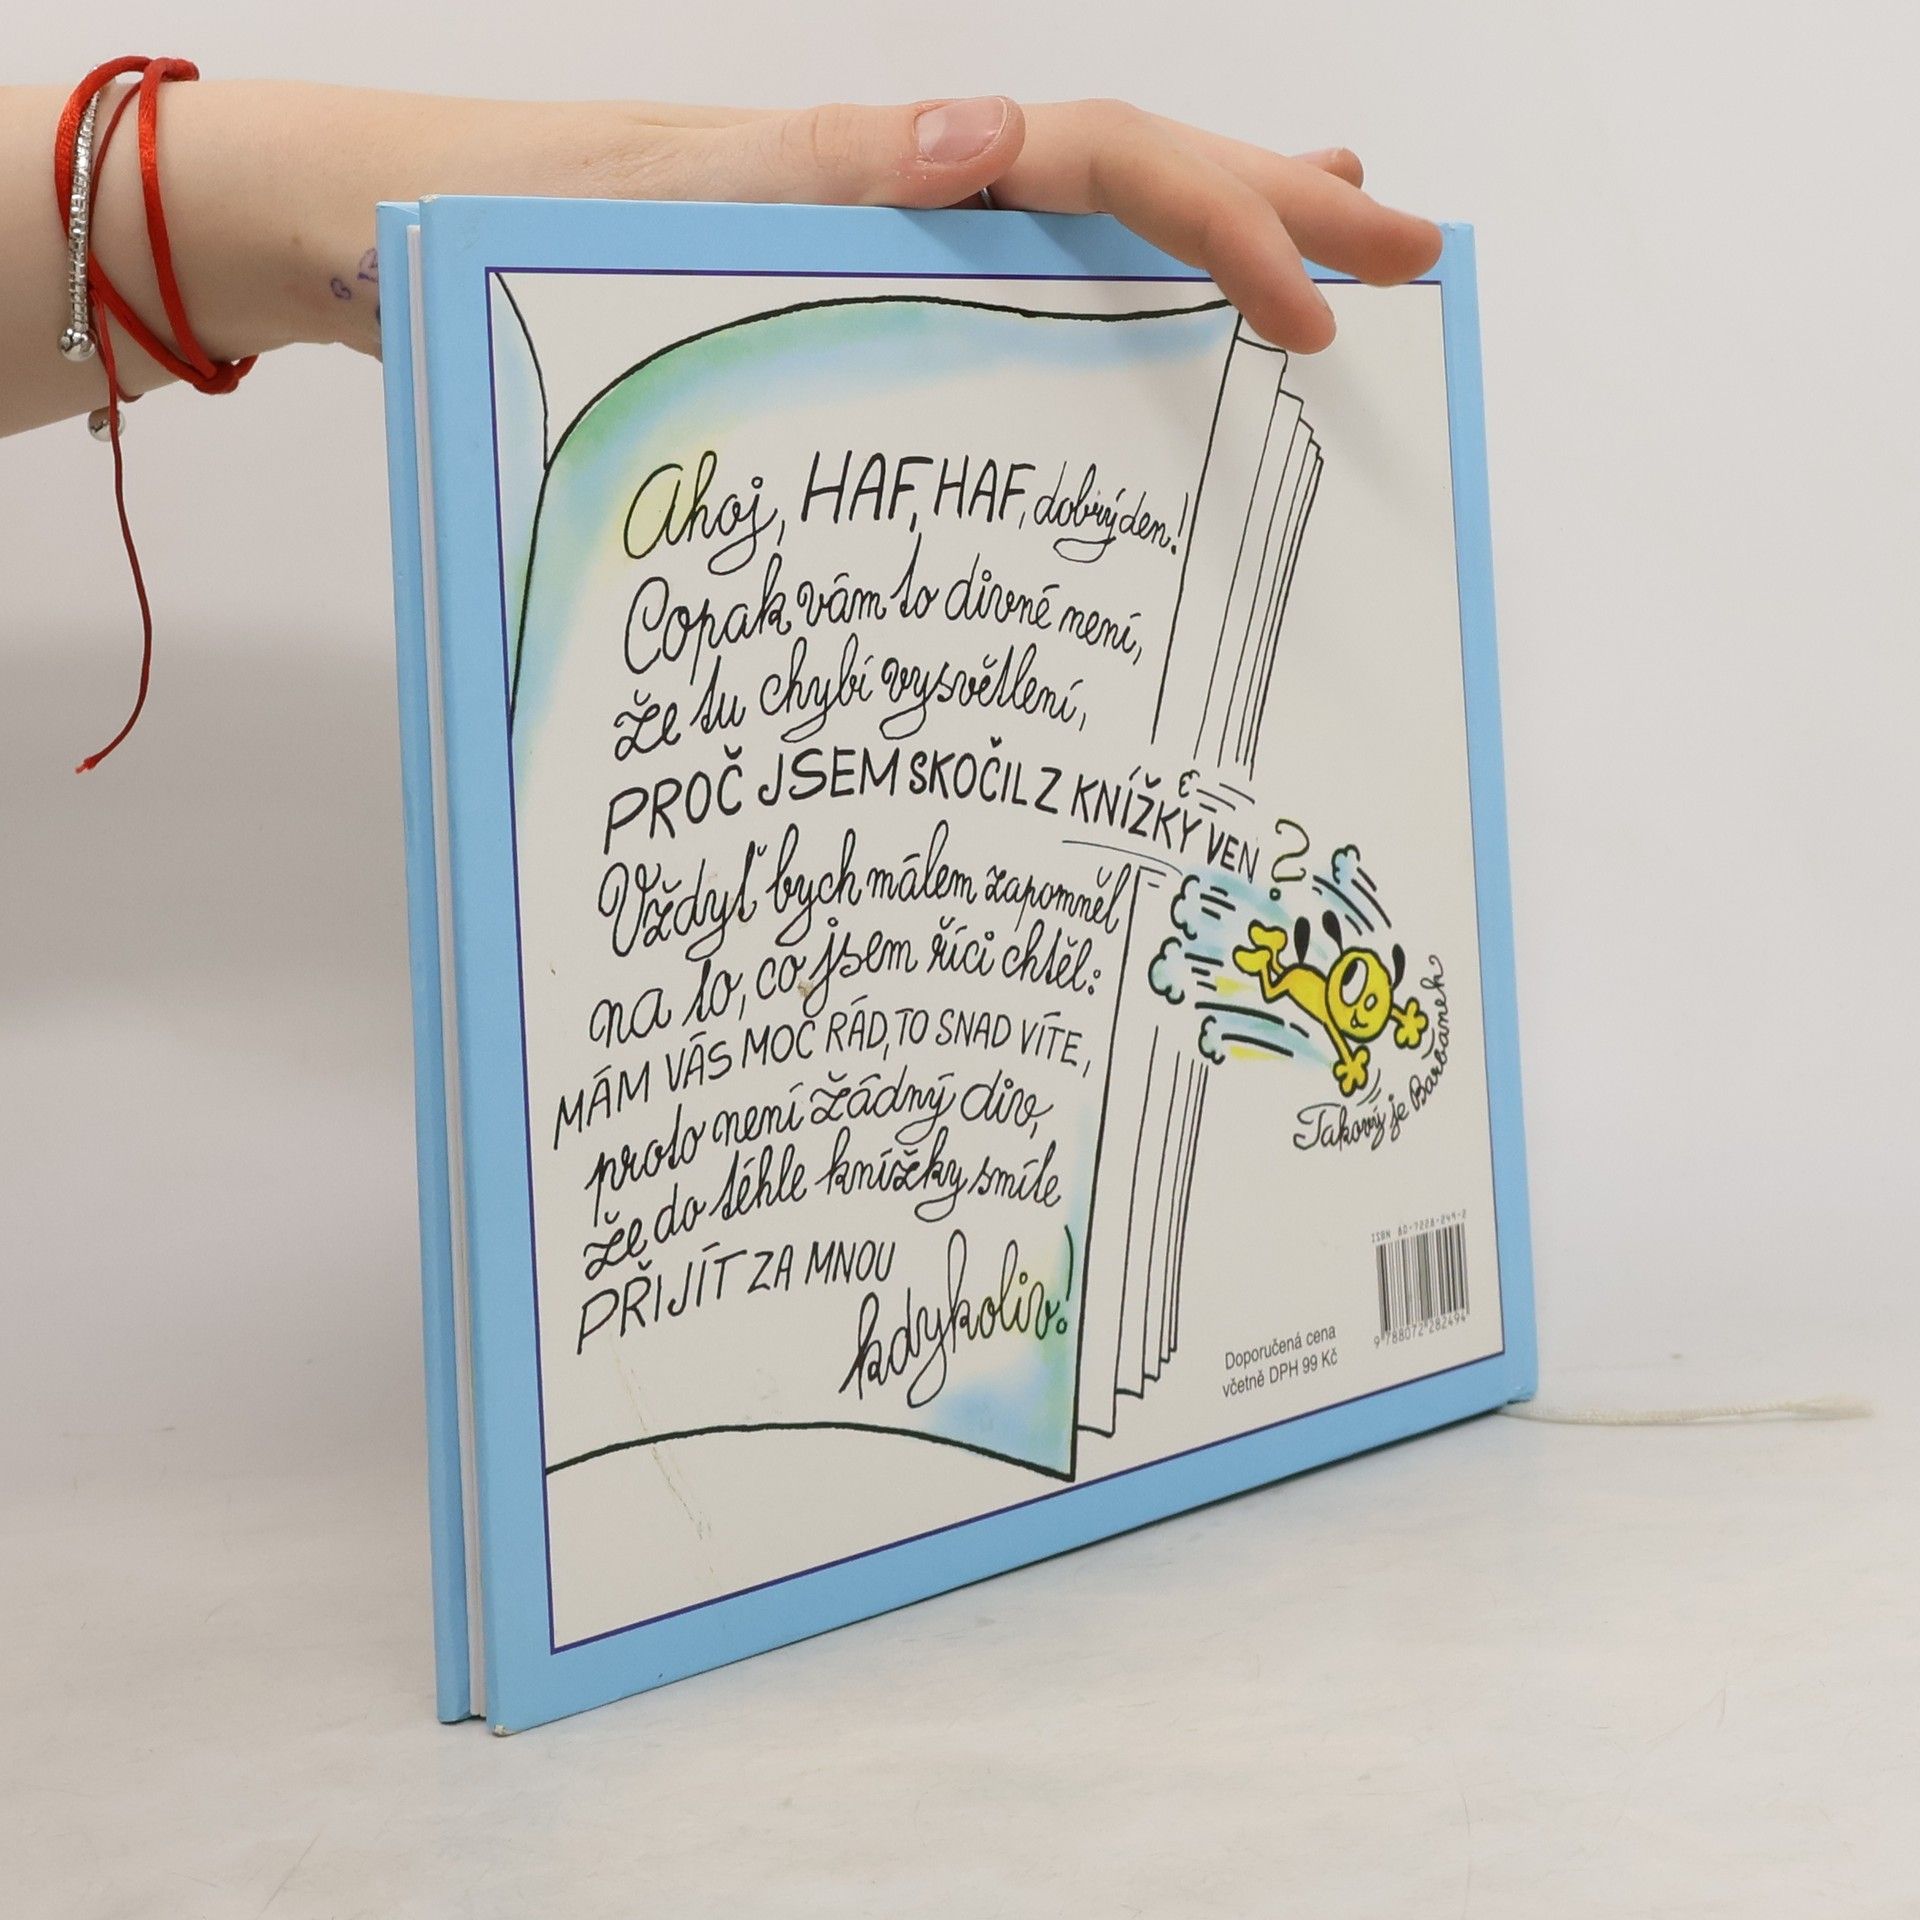 Ahoj, HAF, HAF, dobrý den!
Copak vám to divné není,
že tu chybí vysvětlení,
PROČ JSEM SKOČIL Z KNÍŽKY VEN?
Vždyť bych málem zapomněl
na to, co jsem říci chtěl:
MÁM VÁS MOC RÁD, TO SNAD VÍTE,
proto není žádný div,
že do téhle knížky smíte
PŘIJÍT ZA MNOU
kdykoliv!
Takový je Barbánek
ISBN 80-7228-249-2
9 788072 282494
Doporučená cena
včetně DPH 99 Kč